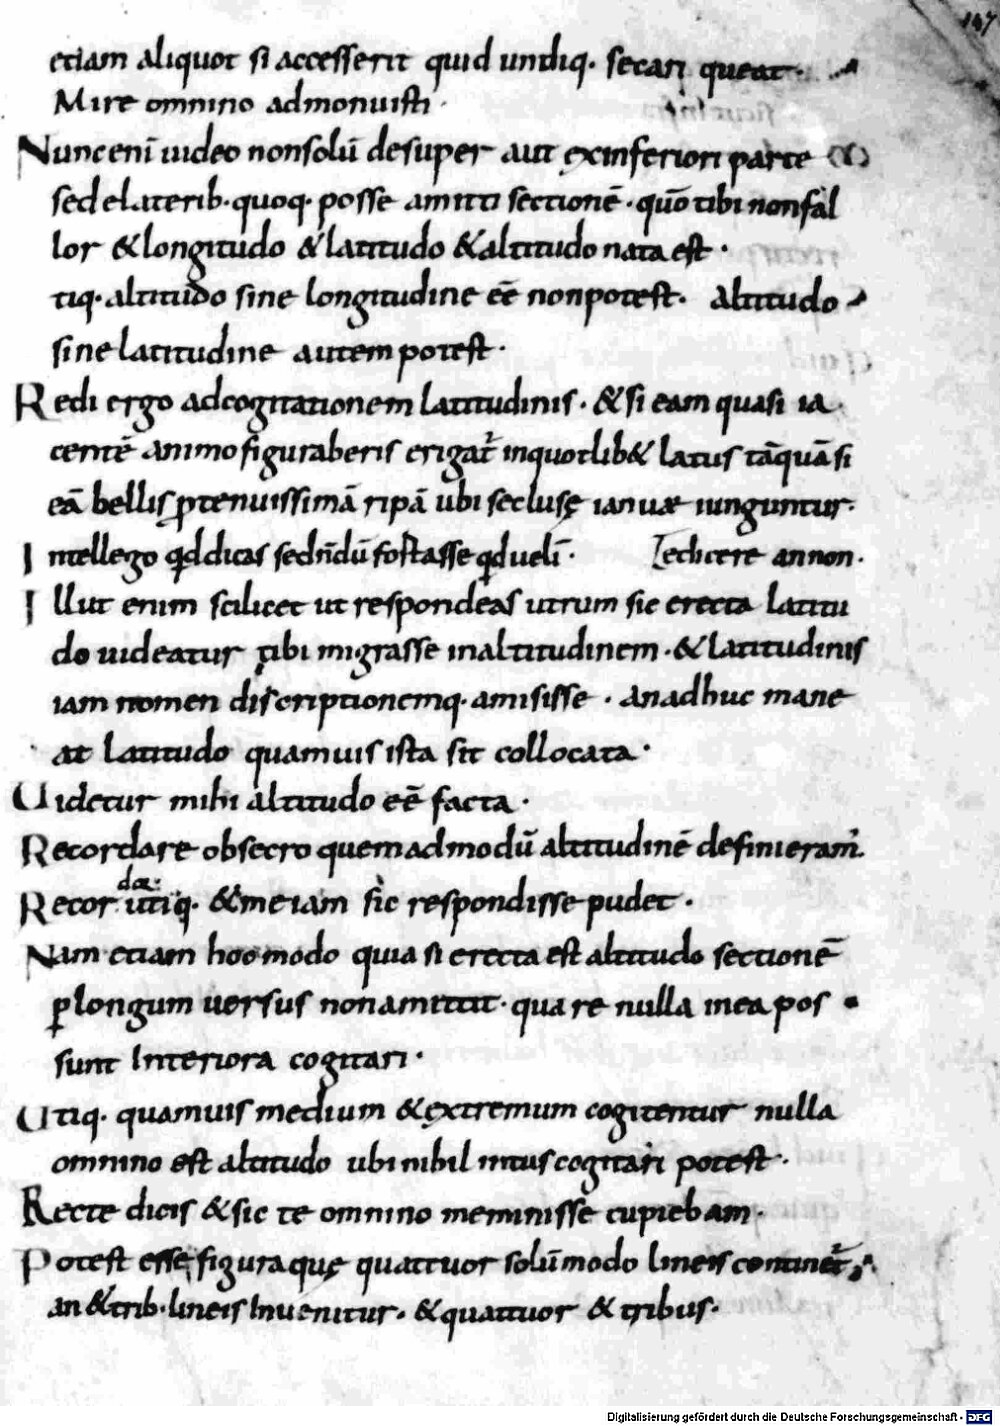 147
etiam aliquot si accesserit quid undiq· secari queat·
Mire omnino admonuisti·
Nunc enī uideo nonsolū desuper aut exinferiori parte
sed elaterib· quoq· posse amitti sectionē· quō tibi nonfal
lor & longitudo & latitudo & altitudo nata est·
tiq· altitudo sine longitudine eē nonpotest· Altitudo
sine latitudine autem potest·
Redi ergo adcogitationem latitudinis· & si eam quasi ia
centē animo figuraberis erigat̄ inquotlib& latus tāquā si
eā bellis ꝑtenuissimā ripā ubi secluse ianuae iunguntur·
Intellego qđ dicas sed n̄dū fortasse qđ uelī· edicere annon·
Illut enim scilicet ut respondeas utrum sic erecta latitu
do uideatur tibi migrasse inaltitudinem· & latitudinis
iam nomen discriptionemq· amisisse· an adhuc mane
at latitudo quamuis ista sit collocata·
Uidetur mihi altitudo eē facta·
Recordare obsecro quemadmodū altitudinē definieram̄·
Recor
da:
utiq· & me iam sic respondisse pudet·
Nam etiam hoc modo quia si erecta est altitudo sectionē
ꝑ longum uersus non amittit· quare nulla inea pos
sunt Interiora cogitari·
Utiq· quamuis medium & extremum cogitentur nulla
omnino est altitudo ubi nihil intus cogitari potest·
Recte dicis & sic te omnino meminisse cupiebam·
Potest esse figura quę quattuor solūmodo lineis continet̄
an & trib· lineis Inuenitur· & quattuor & tribus·
Digitalisierung gefördert durch die Deutsche Forschungsgemeinschaft - DFG